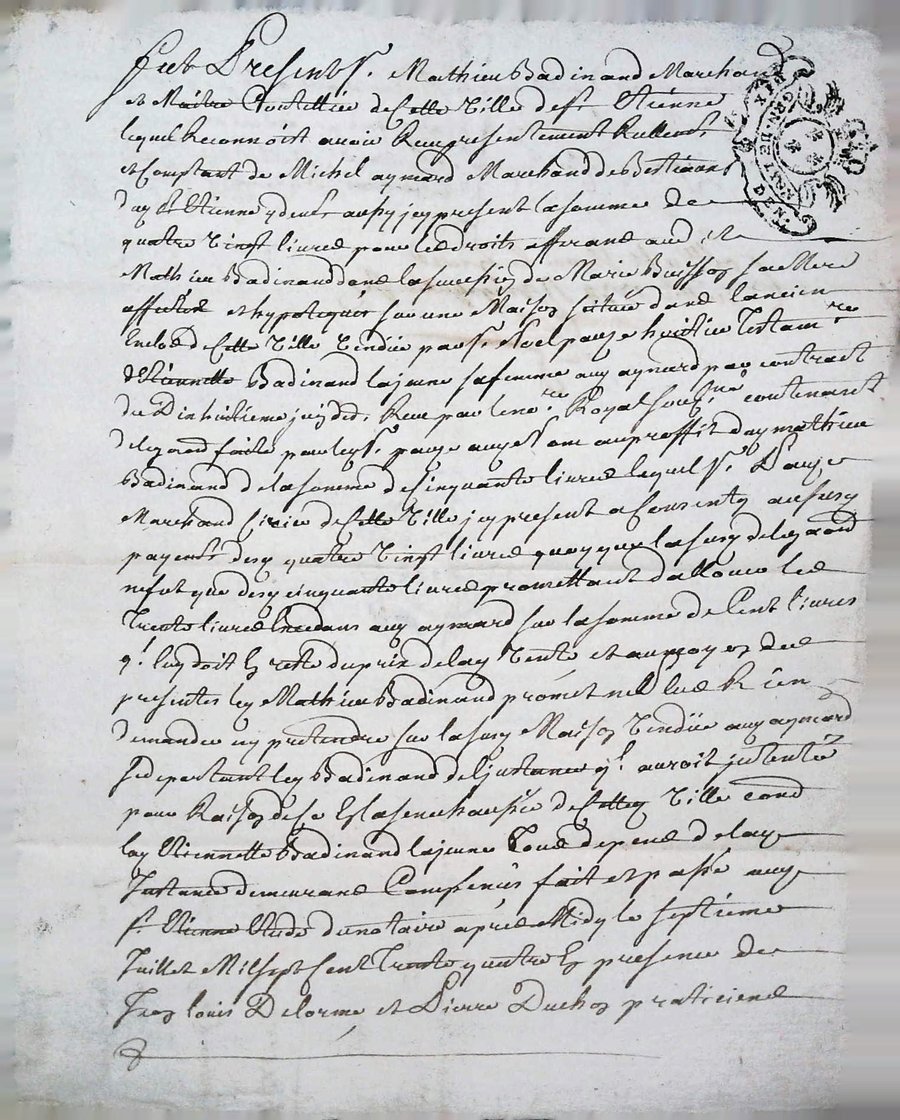 fut Present s.r Mathieu Badinand Marchand
et Maitre Coutellier de Cette Ville de st Etienne
lequel Reconnoit avoir Reu presentement Rellement
et Comptant de Michel aymard Marchand de Bestiaux
dud st Etienne y deml.t aussy jcy present la somme de
quatre vingt livres pour les droits afferans aud
Mathieu Badinand dans la succession de Marie Buisson sa Mere
affectés et hypotequés sur une Maison scituée dans lancien
Enclos de Cette Ville Vendüe par s.r Noel pauze heritier Testam.re
d'Etiennette Badinand la jeune sa femme aud aymard par contract
du Dix huitieme juin d.er Reçu par le no.re Royal soub.né contenant
delegaon faite par led s.r pauze aud aymard au proffit dud mathieu
Badinand de la somme de Cinquante livres lequel s.r Pauze
Marchand Cirier de Cette Ville jcy present a Consenty au susd
payem.t desd quatre Vingt livres quoy que la susd delegaon
ne fut que desd cinquante livres promettant dallouer les
Trente livres Excedans aud aymard sur la somme de Cent livres
q.l luy doit En reste du prix de lad Vente et au moyen des
presentes led Mathieu Badinand promet ne luy Rien
demander ny pretendre sur la susd Maison Vendüe aud aymard
se departant led Badinand de l'jnstance q.l avoit jntenté
pour Raison de ce En la senechaussée de Cetted Ville contre
lad Etiennette Badinand la jeune Tous depens de lad
Jnstance demeurans Compensés fait et passé aud
st Etienne Etude du notaire après Midy le septieme
Juillet Mil sept Cent Trente quatre En presence de
Jean louis Delorme et Pierre Duchon praticiens